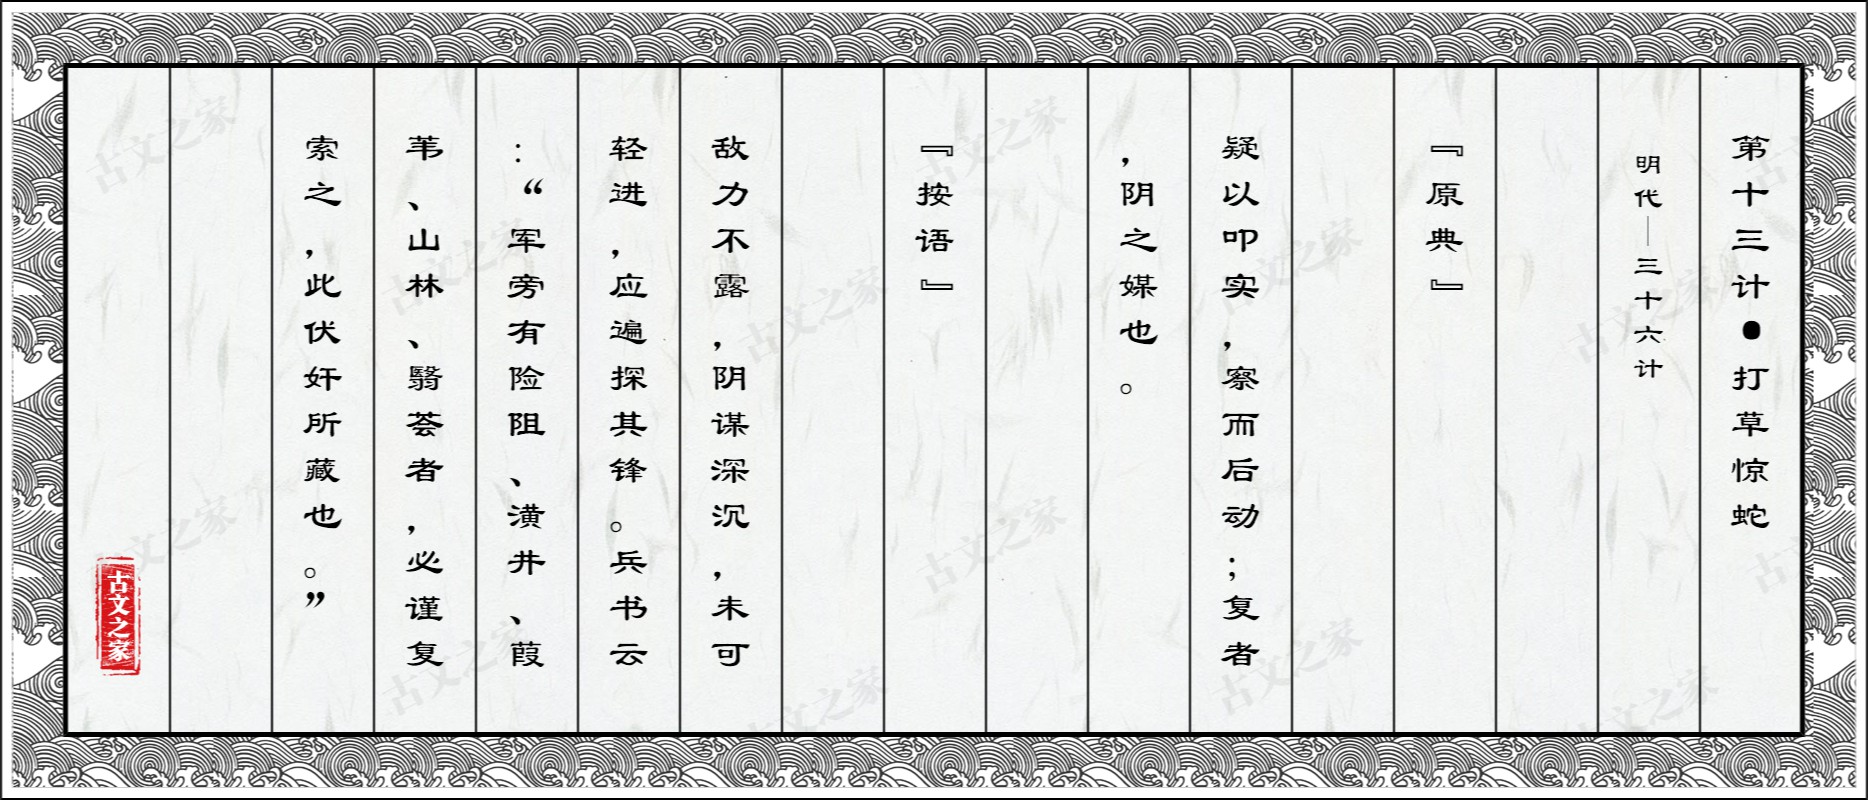 第十三计●打草惊蛇
明代—三十六计
『原典』
疑以叩实，察而后动；复者
，阴之媒也。
『按语』
敌力不露，阴谋深沉，未可
轻进，应遍探其锋。兵书云
：“军旁有险阻、潢井、葭
苇、山林、翳荟者，必谨复
索之，此伏奸所藏也。”
古文之家